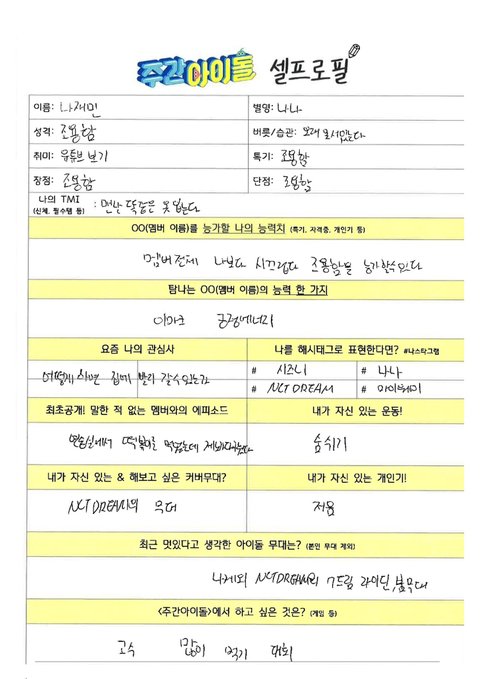 주간아이돌 셀프로필
이름: 나재민 별명: 나나
성격: 조용함 버릇/습관: 오래 못서있는다
취미: 유튜브 보기 특기: 조용함
장점: 조용함 단점: 조용함
나의 TMI
(신체, 필수템 등) : 만난 못
OO(멤버 이름)를 능가할 나의 능력치 (특기, 자격증, 개인기 등)
멤버전체 나보다 시끄럽다 조용함을 능가할수있다
탐나는 OO(멤버 이름)의 능력 한 가지
이마크 긍정에너지
요즘 나의 관심사 나를 해시태그로 표현한다면? #나스타그램
어떻게 하면 집에 빨리 갈수있는가 # 시즈니 # 나나
# NCT DREAM # 마이웨이
최초공개! 말한 적 없는 멤버와의 에피소드 내가 자신 있는 운동!
연습실에서 떡볶이를 먹었는데 숨쉬기
내가 자신 있는 & 해보고 싶은 커버무대? 내가 자신 있는 개인기!
NCT DREAM의 무대 저음
최근 멋있다고 생각한 아이돌 무대는? (본인 무대 제외)
나제외 NCT DREAM의 7드림 라이딘,붐무대
<주간아이돌>에서 하고 싶은 것은? (게임 등)
고수 많이 먹기 대회